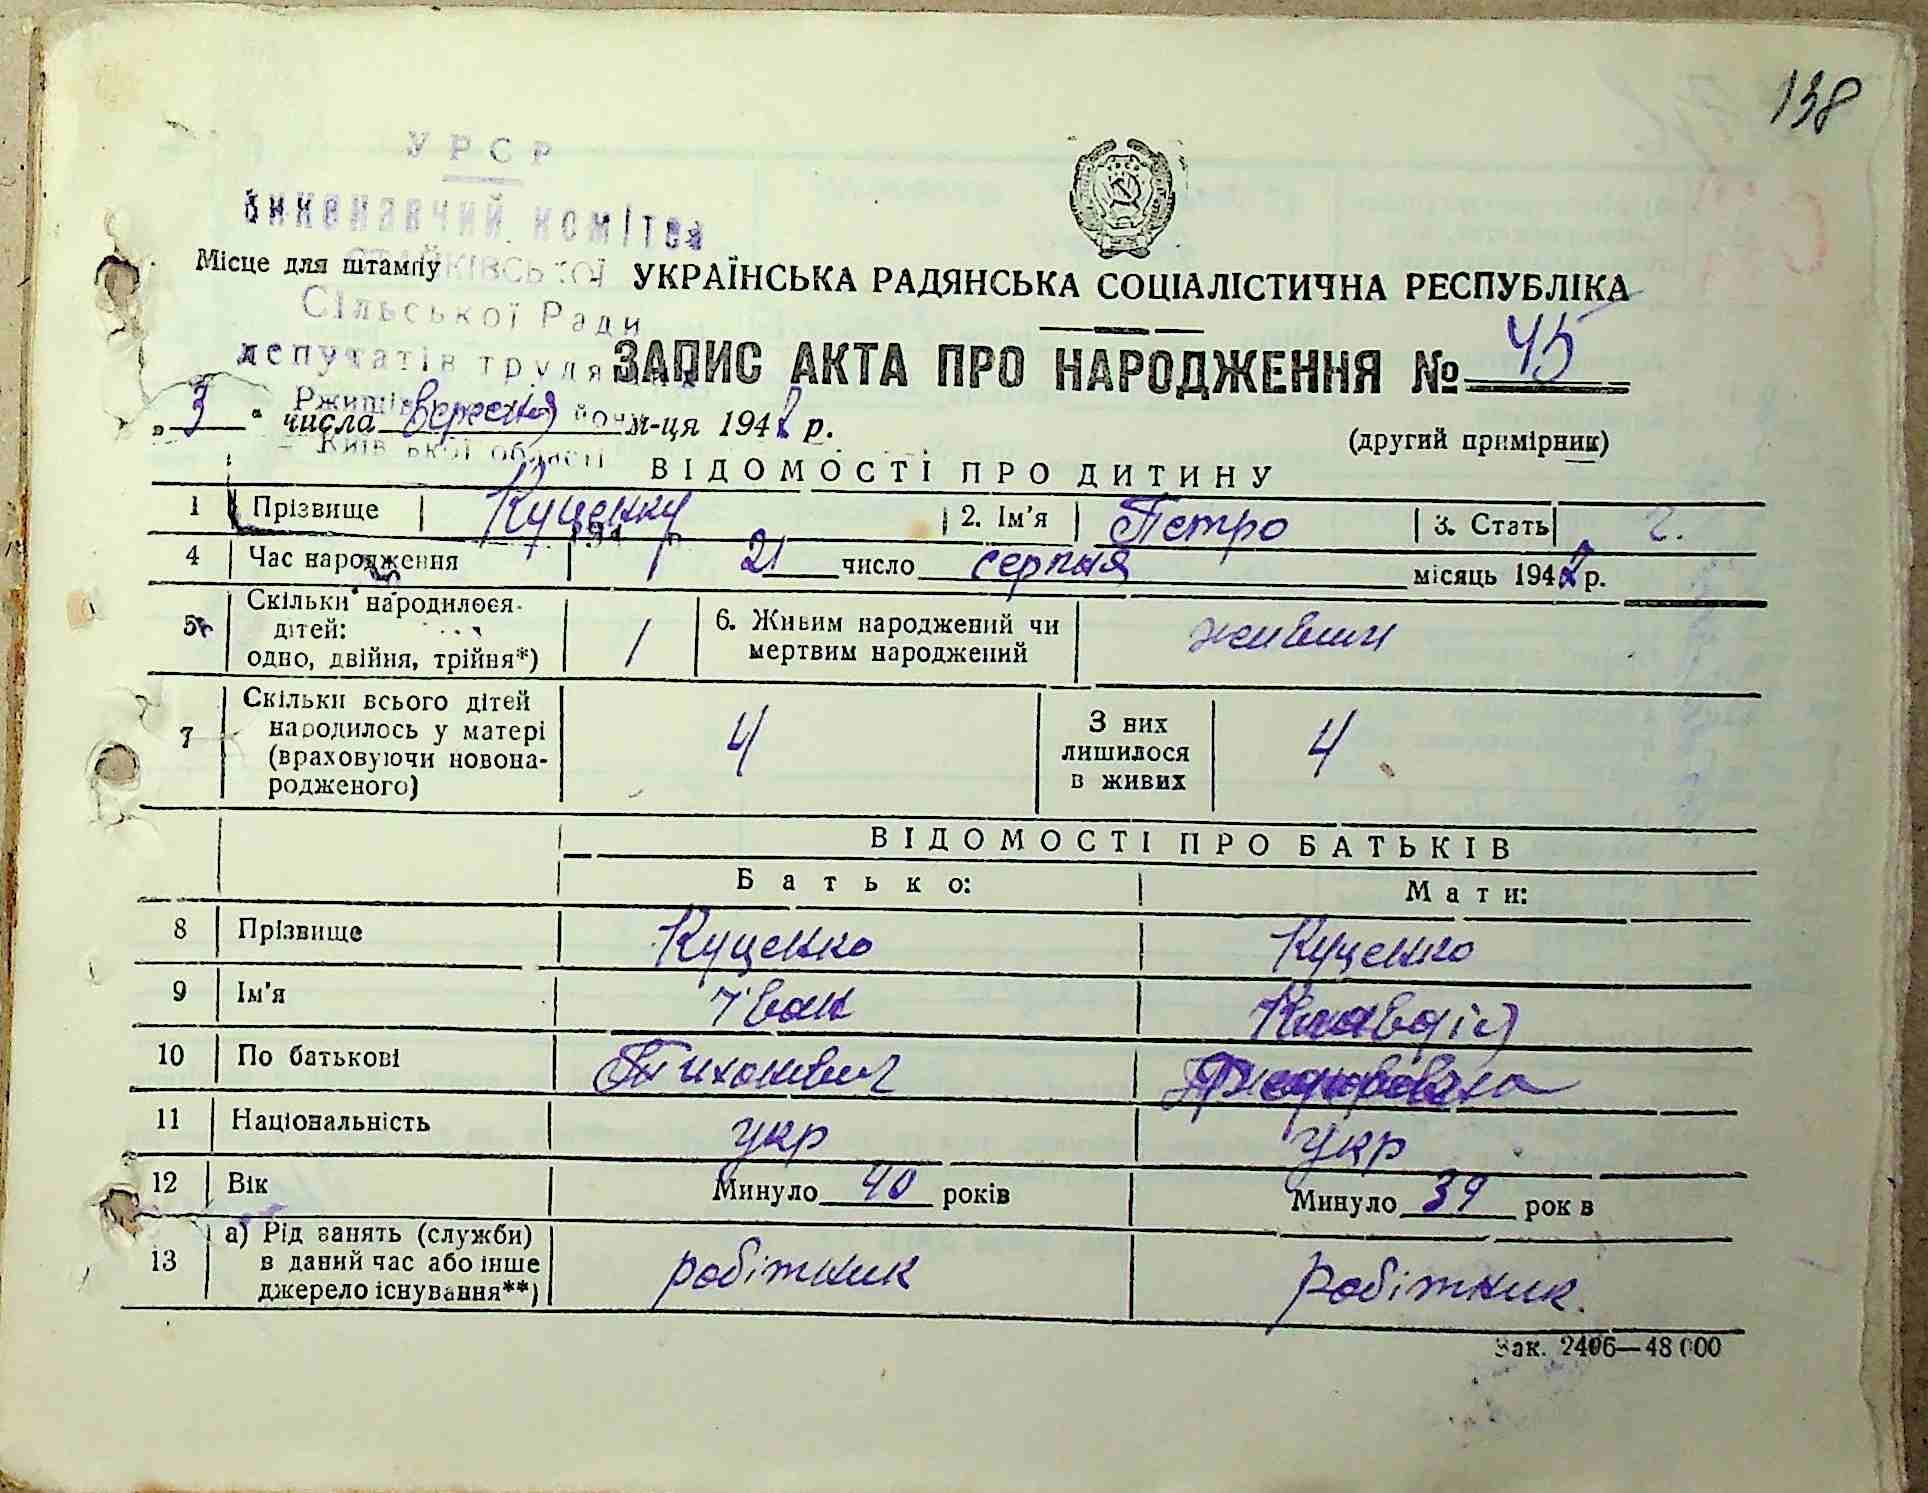 138
УРСР
виконавчий комітет
Місце для штампу
СТАЙКІВСЬКОЇ
УКРАЇНСЬКА РАДЯНСЬКА СОЦІАЛІСТИЧНА РЕСПУБЛІКА
Сільської Ради
депутатів трудя
ЗАПИС АКТА ПРО НАРОДЖЕННЯ № 45
„ 3 “ числа вересня м-ця 1948 р.
(другий примірник)
Київ ської області
ВІДОМОСТІ ПРО ДИТИНУ
1 Прізвище Куценко 2. Ім'я Петро 3. Стать ч.
4 Час народження 21 число серпня місяць 1948 р.
5 Скільки народилося дітей: одно, двійня, трійня*) 1 6. Живим народжений чи мертвим народжений живим
7 Скільки всього дітей народилось у матері (враховуючи новонародженого) 4 З них лишилося в живих 4
ВІДОМОСТІ ПРО БАТЬКІВ
Батько: Мати:
8 Прізвище Куценко Куценко
9 Ім'я Іван Клавдія
10 По батькові Тихонович
11 Національність укр укр
12 Вік Минуло 40 років Минуло 39 рок в
13 а) Рід занять (служби) в даний час або інше джерело існування**) робітник робітник.
Зак. 2406—48 000